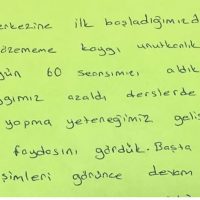 erkezine ilk başladığımızd
özememe kaygı unutkanlık
gün 60 seansımızı aldık
ığımız azaldı derslerde
yapma yeteneğimiz geliş
faydasını gördük. Başta
şimleri görünce devam